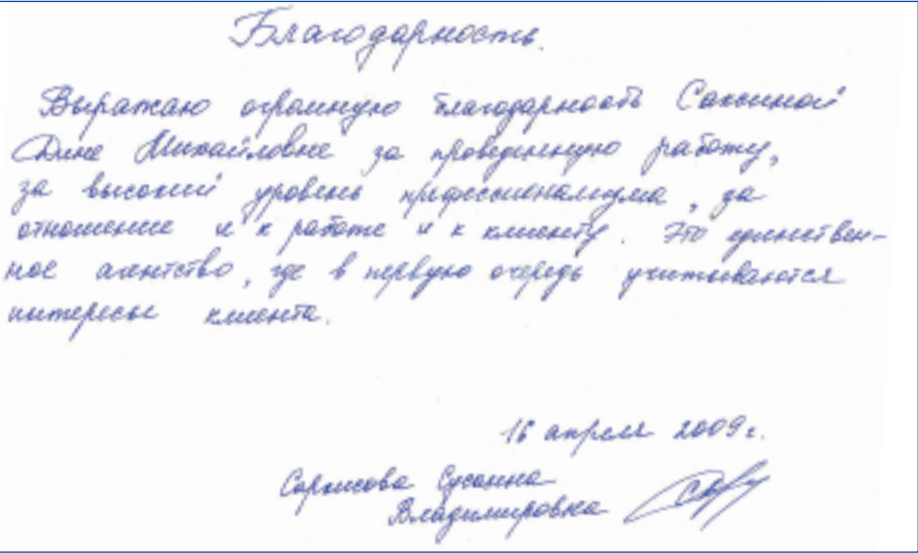 Благодарность.
Выражаю огромную благодарность Саксиной
Дине Михайловне за проведенную работу,
за высокий уровень профессионализма, за
отношение и к работе и к клиенту. Это единствен-
ное агентство, где в первую очередь учитываются
интересы клиента.
16 апреля 2009 г.
Сусанна
Владимировна